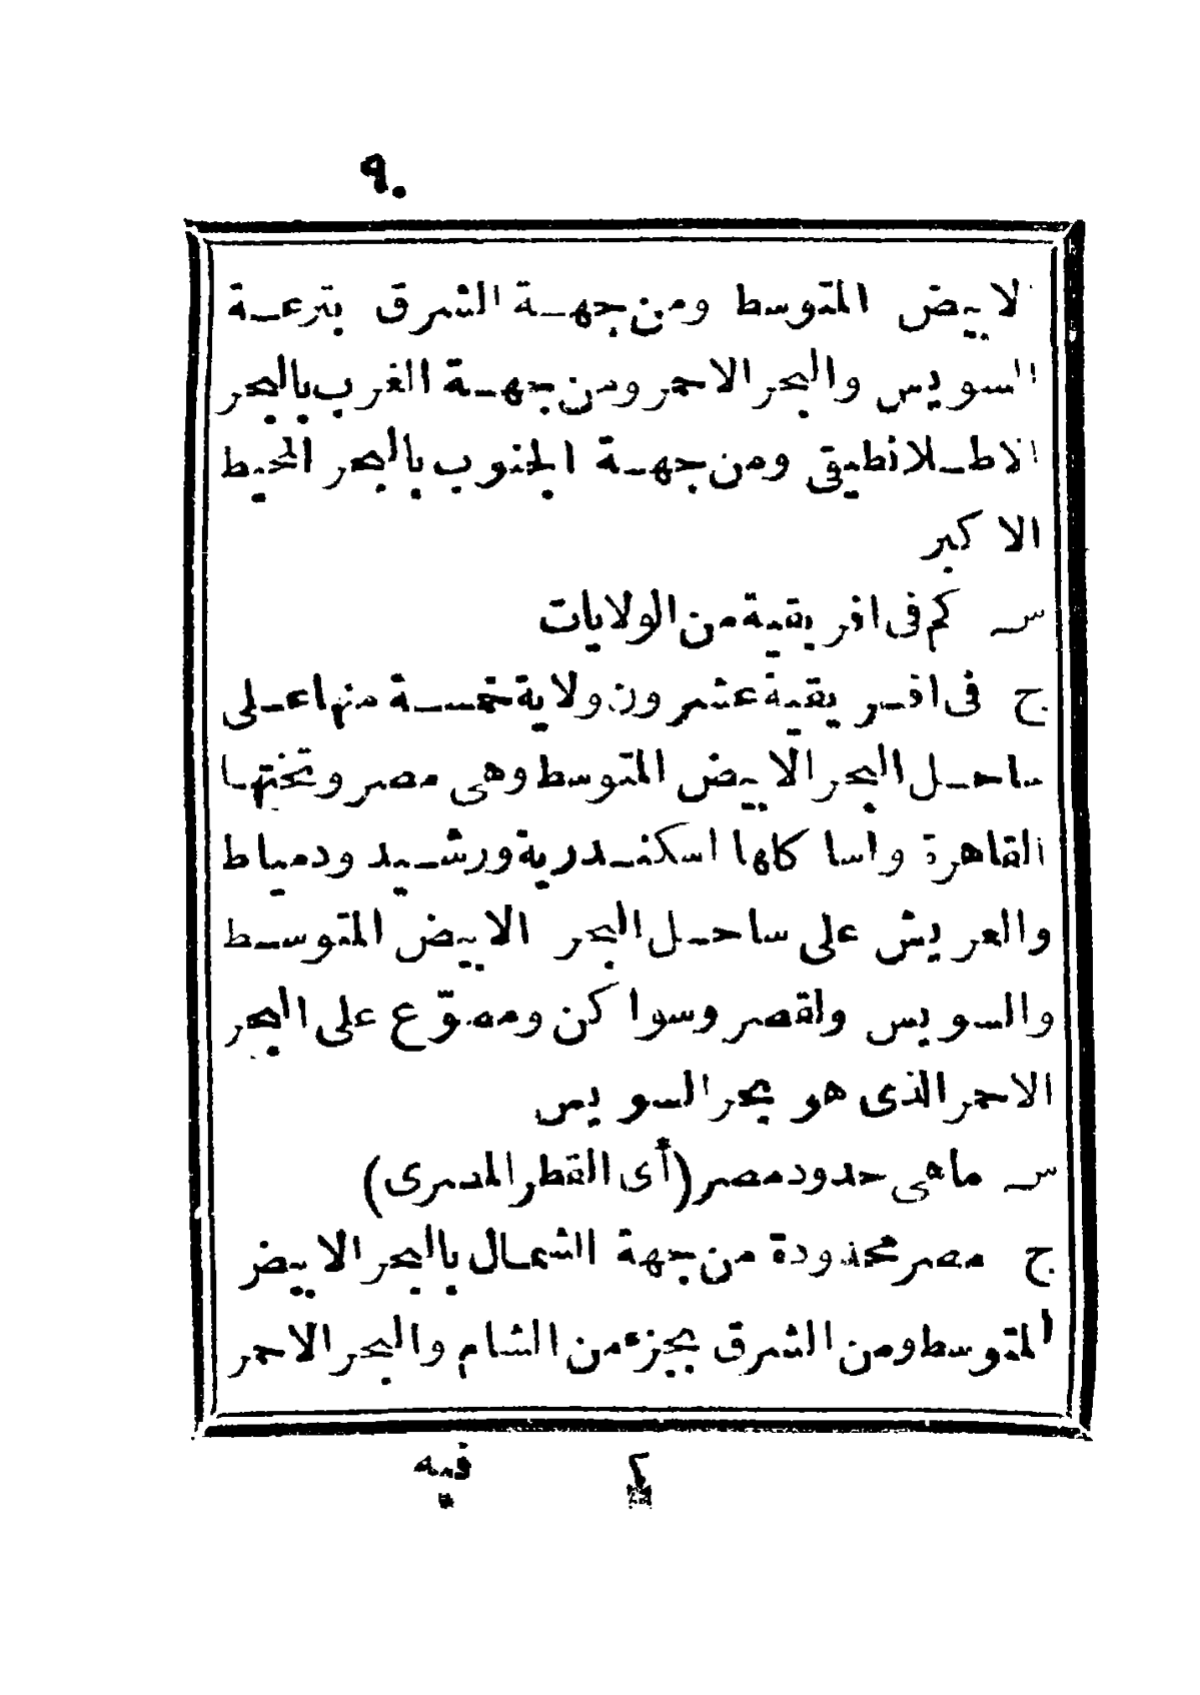 ٩٠
الابيض المتوسط ومن جهة الشرق بترعة
السويس والبحر الاحمر ومن جهة الغرب بالبحر
الاطلانطيقى ومن جهة الجنوب بالبحر المحيط
الاكبر
س كم فى افريقية من الولايات
ج فى افريقية عشرون ولاية خمسة منها على
ساحل البحر الابيض المتوسط وهى مصر وتختها
القاهرة واساكلها اسكندرية ورشيد ودمياط
والعريش على ساحل البحر الابيض المتوسط
والسويس ولقصر وسواكن ومصوّع على البحر
الاحمر الذى هو بحر السويس
س ماهى حدود مصر (أى القطر المصرى)
ج مصر محدودة من جهة الشمال بالبحر الابيض
المتوسط ومن الشرق بجزء من الشام والبحر الاحمر
فيه